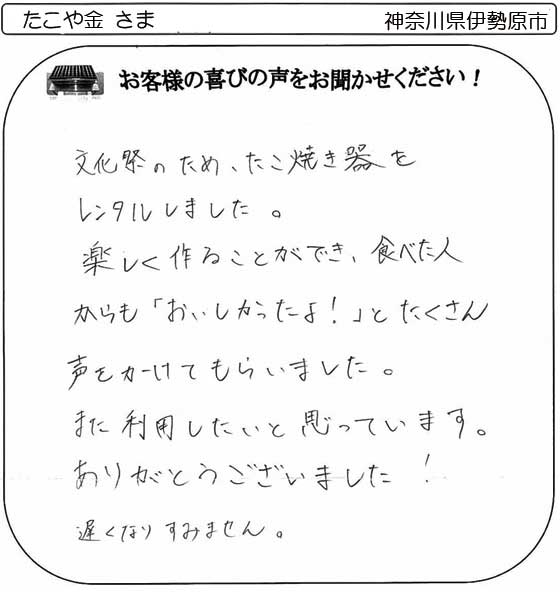 たこや金 さま 神奈川県伊勢原市
お客様の喜びの声をお聞かせください！
文化祭のため、たこ焼き器を
レンタルしました。
楽しく作ることができ、食べた人
からも「おいしかったよ！」とたくさん
声をかけてもらいました。
また利用したいと思っています。
ありがとうございました！
遅くなりすみません。